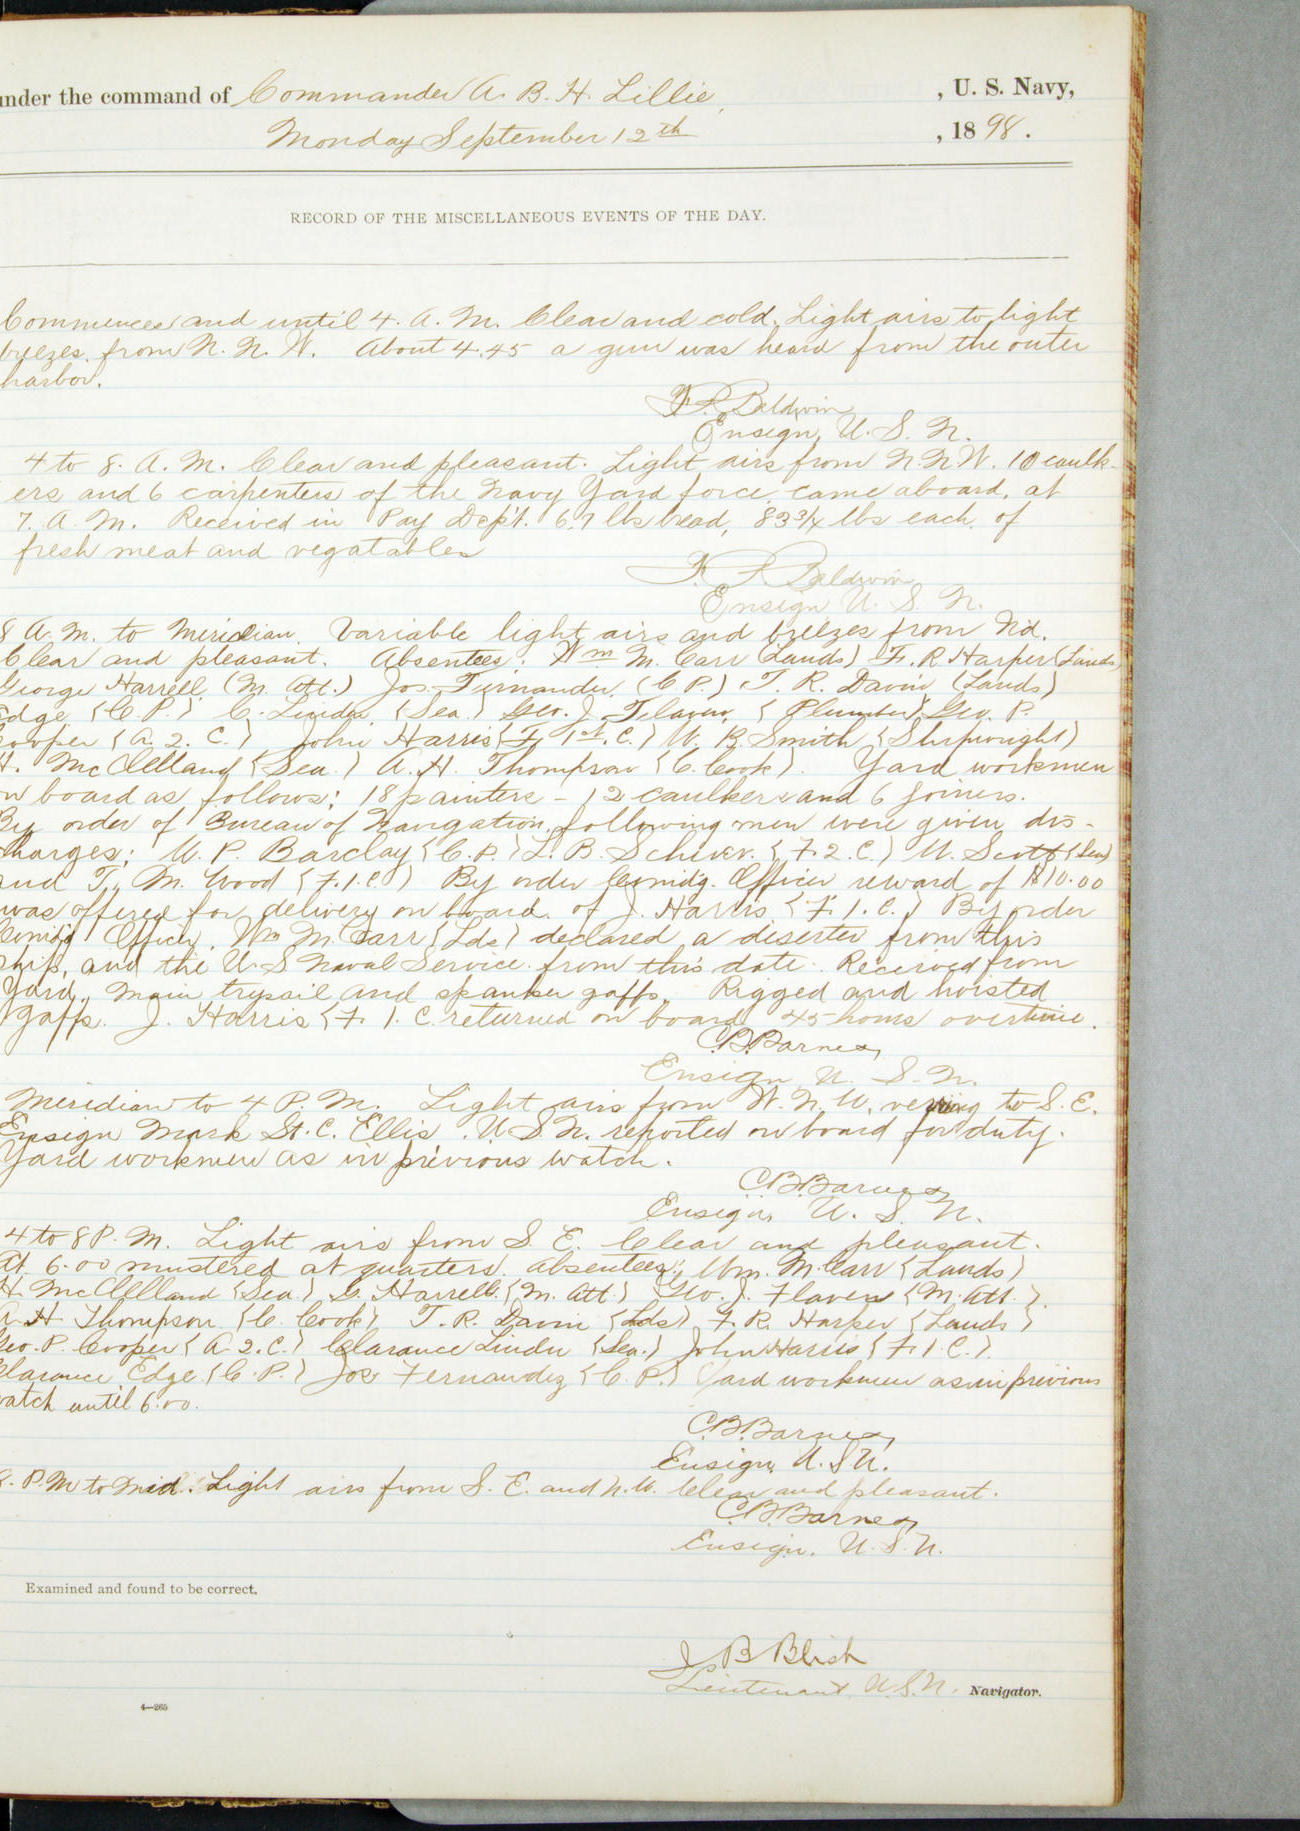 under the command of Commander A. B. H. Lillie, , U. S. Navy,
Monday September 12th , 1898.
RECORD OF THE MISCELLANEOUS EVENTS OF THE DAY.
Commences and until 4. A. M. Clear and cold. Light airs to light
breezes from N. N. W. About 4.45 a gun was heard from the outer
harbor.
F. P. Baldwin
Ensign, U. S. N.
4 to 8. A. M. Clear and pleasant. Light airs from N. N. W. 10 caulk-
ers and 6 carpenters of the Navy Yard force, came aboard, at
7. A. M. Received in Pay Dept. 67 lbs bread, 83 3/4 lbs each of
fresh meat and vegatables
F. P. Baldwin
Ensign U. S. N.
8 A. M. to Meridian. Variable light airs and breezes from N'd.
Clear and pleasant. Absentees: Wm M. Carr (Lands) F. R Harper (Lands)
George Harrell, (M. Att.) Jos. Fernander, (C. P.) T. R. Davin (Lands)
Edge {C. P.} C. Linder, {Sea.} Geo. J. Flaven, {Plumber} Geo. P.
Cooper {A. 2. C.} John Harris {F. 1st. C.} W. B. Smith {Shipwright}
H. McClelland {Sea.} A. H. Thompson {C. Cook}. Yard workmen
on board as follows: 18 painters - 12 caulkers and 6 joiners.
By order of Bureau of Navigation, following men were given dis-
charges: W. P. Barclay {C. P.} L. B. Schiver. {F. 2. C.} W. Scott {Sea}
and T. M. Wood {F. 1. C.} By order Comidg. Officer reward of $10.00
was offered for delivery on board of J. Harris {F. 1. C.} By order
Comidg Officer, Wm M. Carr {Lds} declared a deserter from this
ship, and the U. S Naval Service from this date. Received from
Yard, main trysail and spanker gaffs. Rigged and hoisted
gaffs. J. Harris {F. 1. C. returned on board 45 hours overtime.
C. B. Barnes,
Ensign U. S. N.
Meridian to 4 P. M. Light airs from W. N. W. veering to S. E.
Ensign Mark St. C. Ellis, U S. N. reported on board for duty.
Yard workmen as in previous watch.
C B. Barnes
Ensign, U. S. N.
4 to 8 P. M. Light airs from S. E. Clear and pleasant.
At 6.00 mustered at quarters. Absentees: Wm. M. Carr {Lands}
H. McClelland {Sea.} G. Harrell. {M. Att.} Geo. J. Flaven {M. Att.}.
A. H. Thompson {C. Cook}, T. R. Davin {Lds} F. R. Harper {Lands}
Geo. P. Cooper {A. 2. C.} Clarance Linder {Sea.} John Harris {F. 1. C.}.
Clarance Edge {C. P.} Jos Fernandez {C. P.} Yard workmen as in previous
watch until 6.00.
C. B. Barnes,
Ensign, U. S N.
8. P. M to Mid. Light airs from S. E. and N. W. Clear and pleasant.
C. B. Barnes,
Ensign. U. S. N.
Examined and found to be correct.
J B Blish
Lieutenant, U. S. N. Navigator.
4—265